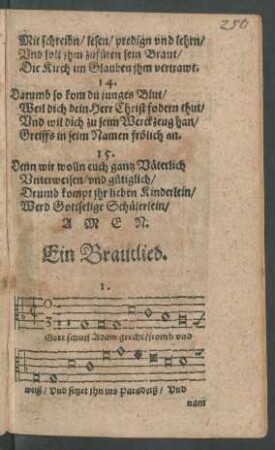 250
Mit schreibn/ lesen/ predign vnd lehrn/
Vnd soll jhm zufüren sein Braut/
Die Kirch im Glauben jhm vertrawt.
14.
Darumb so kom du junges Blut/
Weil dich dein Herr Christ fodern thut/
Vnd wil dich zu seim Werckzeug han/
Greiffs in seim Namen frölich an.
15.
Denn wir wolln euch gantz Väterlich
Vnterweisen/ vnd gütiglich/
Drumb kompt jhr lieben Kinderlein/
Werd Gottselige Schülerlein/
A M E N.
Ein Brautlied.
1.
Gott schuff Adam gerecht/ fromb vnd
weiß/ Vnd setzet jhn ins Paradeiß/ Vnd
nam